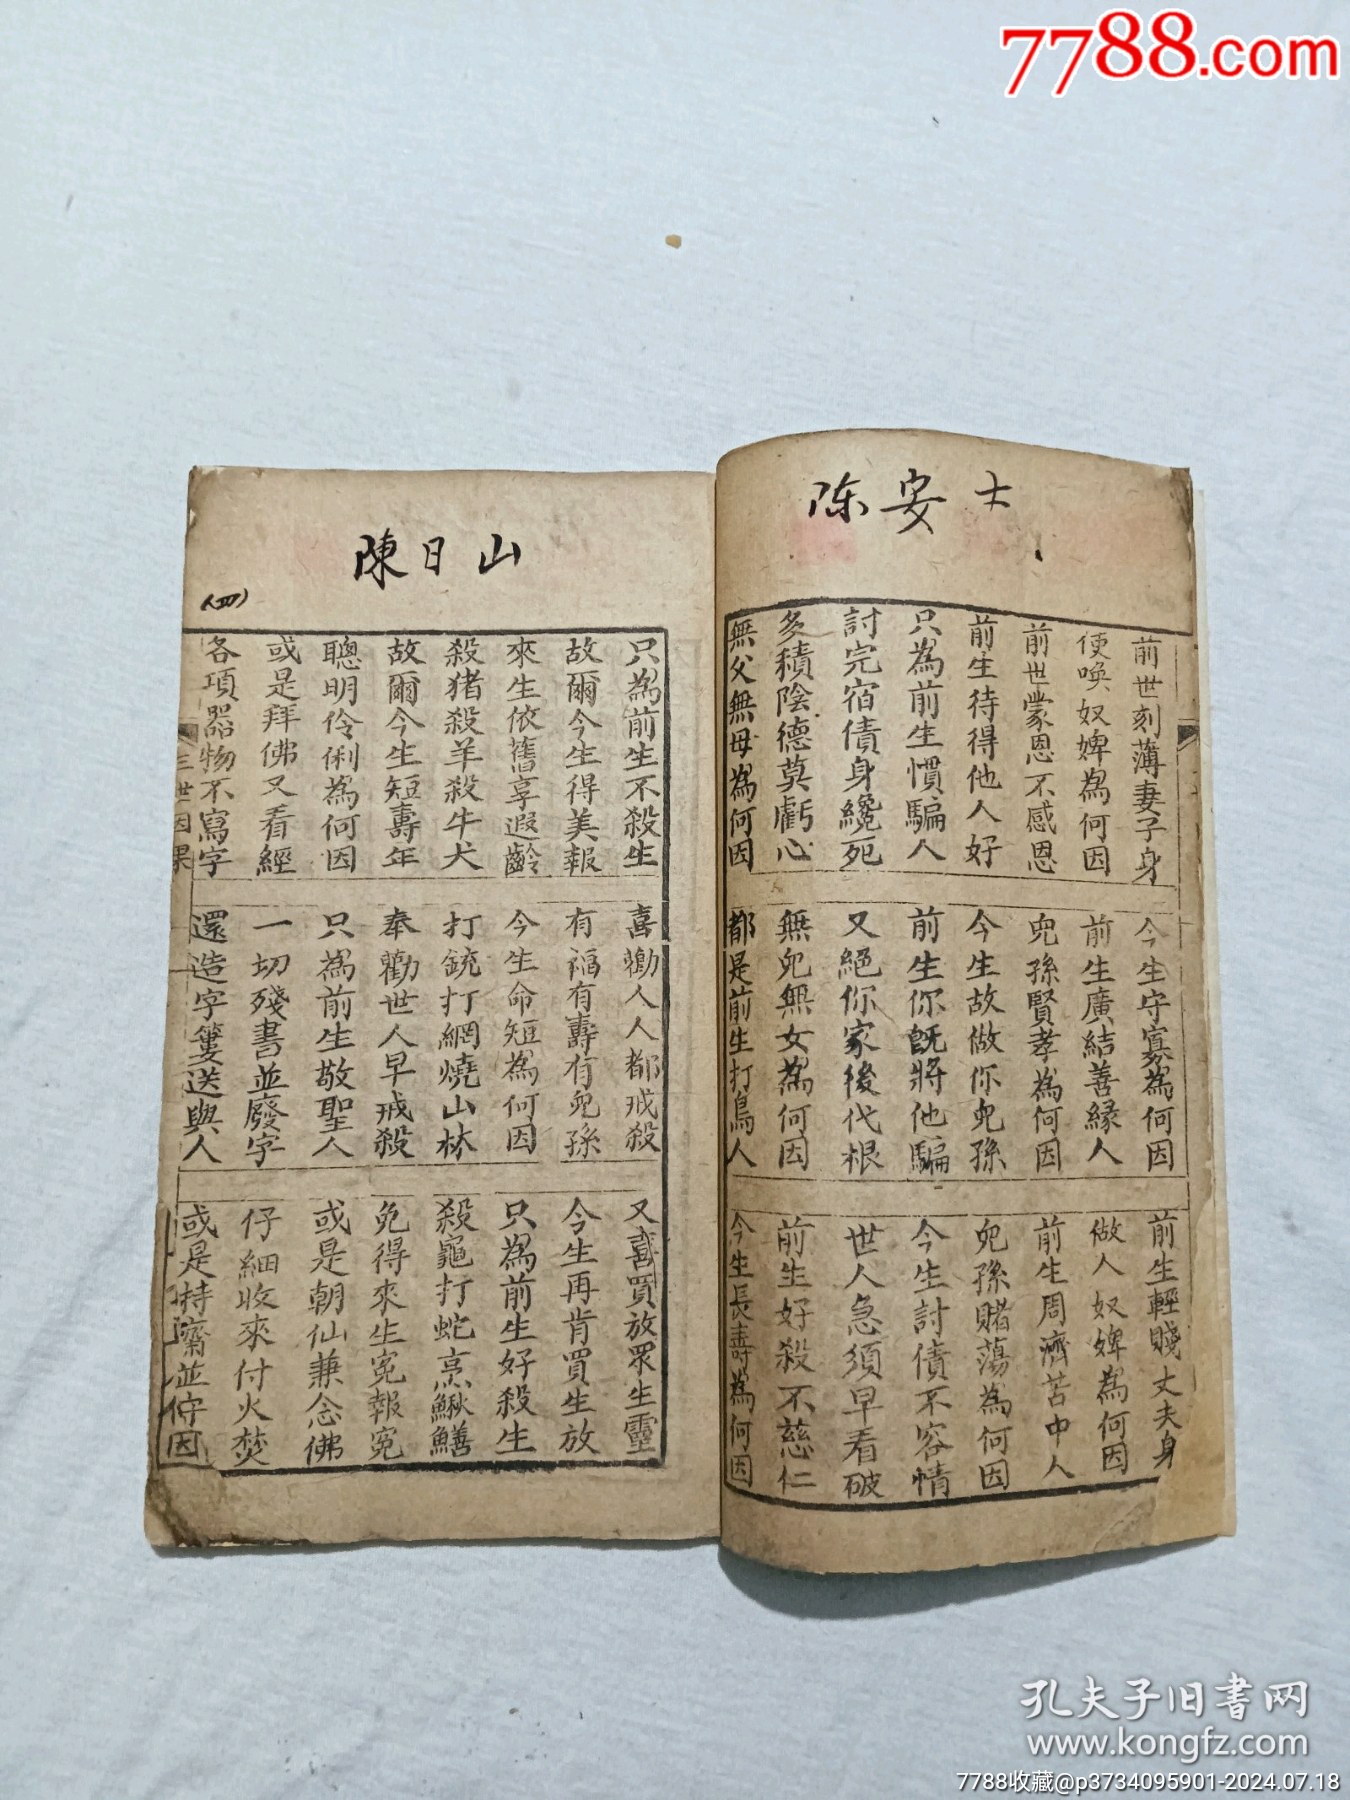 7788.com
陈安士
前世刻薄妻子身
今生守寡為何因
前生輕賤丈夫身
使喚奴婢為何因
前生廣結善緣人
做人奴婢為何因
前世蒙恩不感恩
兒孫賢孝為何因
前生周濟苦中人
前生待得他人好
今生故做你兒孫
兒孫賭蕩為何因
只為前生慣騙人
前生你旣將他騙
今生討債不容情
討完宿債身纔死
又絕你家後代根
世人急須早看破
多積陰德莫虧心
無兒無女為何因
前生好殺不慈仁
無父無母為何因
都是前生打鳥人
今生長壽為何因
陳日山
(四)
只為前生不殺生
喜勸人人都戒殺
又喜買放眾生靈
故爾今生得美報
有福有壽有兒孫
今生再肯買生放
來生依舊享遐齡
今生命短為何因
只為前生好殺生
殺猪殺羊殺牛犬
打銃打網燒山林
殺龜打蛇烹鰍鱔
故爾今生短壽年
奉勸世人早戒殺
免得來生冤報冤
聰明伶俐為何因
只為前生敬聖人
或是朝仙兼念佛
或是拜佛又看經
一切殘書並廢字
仔細收來付火焚
各項器物不寫字
還造字簍送與人
或是持齋並侍因
三世因果
孔夫子旧書网
www.kongfz.com
7788收藏@p3734095901-2024.07.18